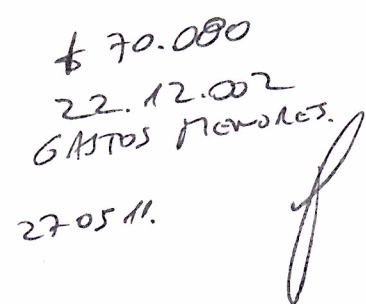 $ 70.080
22.12.002
GASTOS MENORES.
27 05 11.